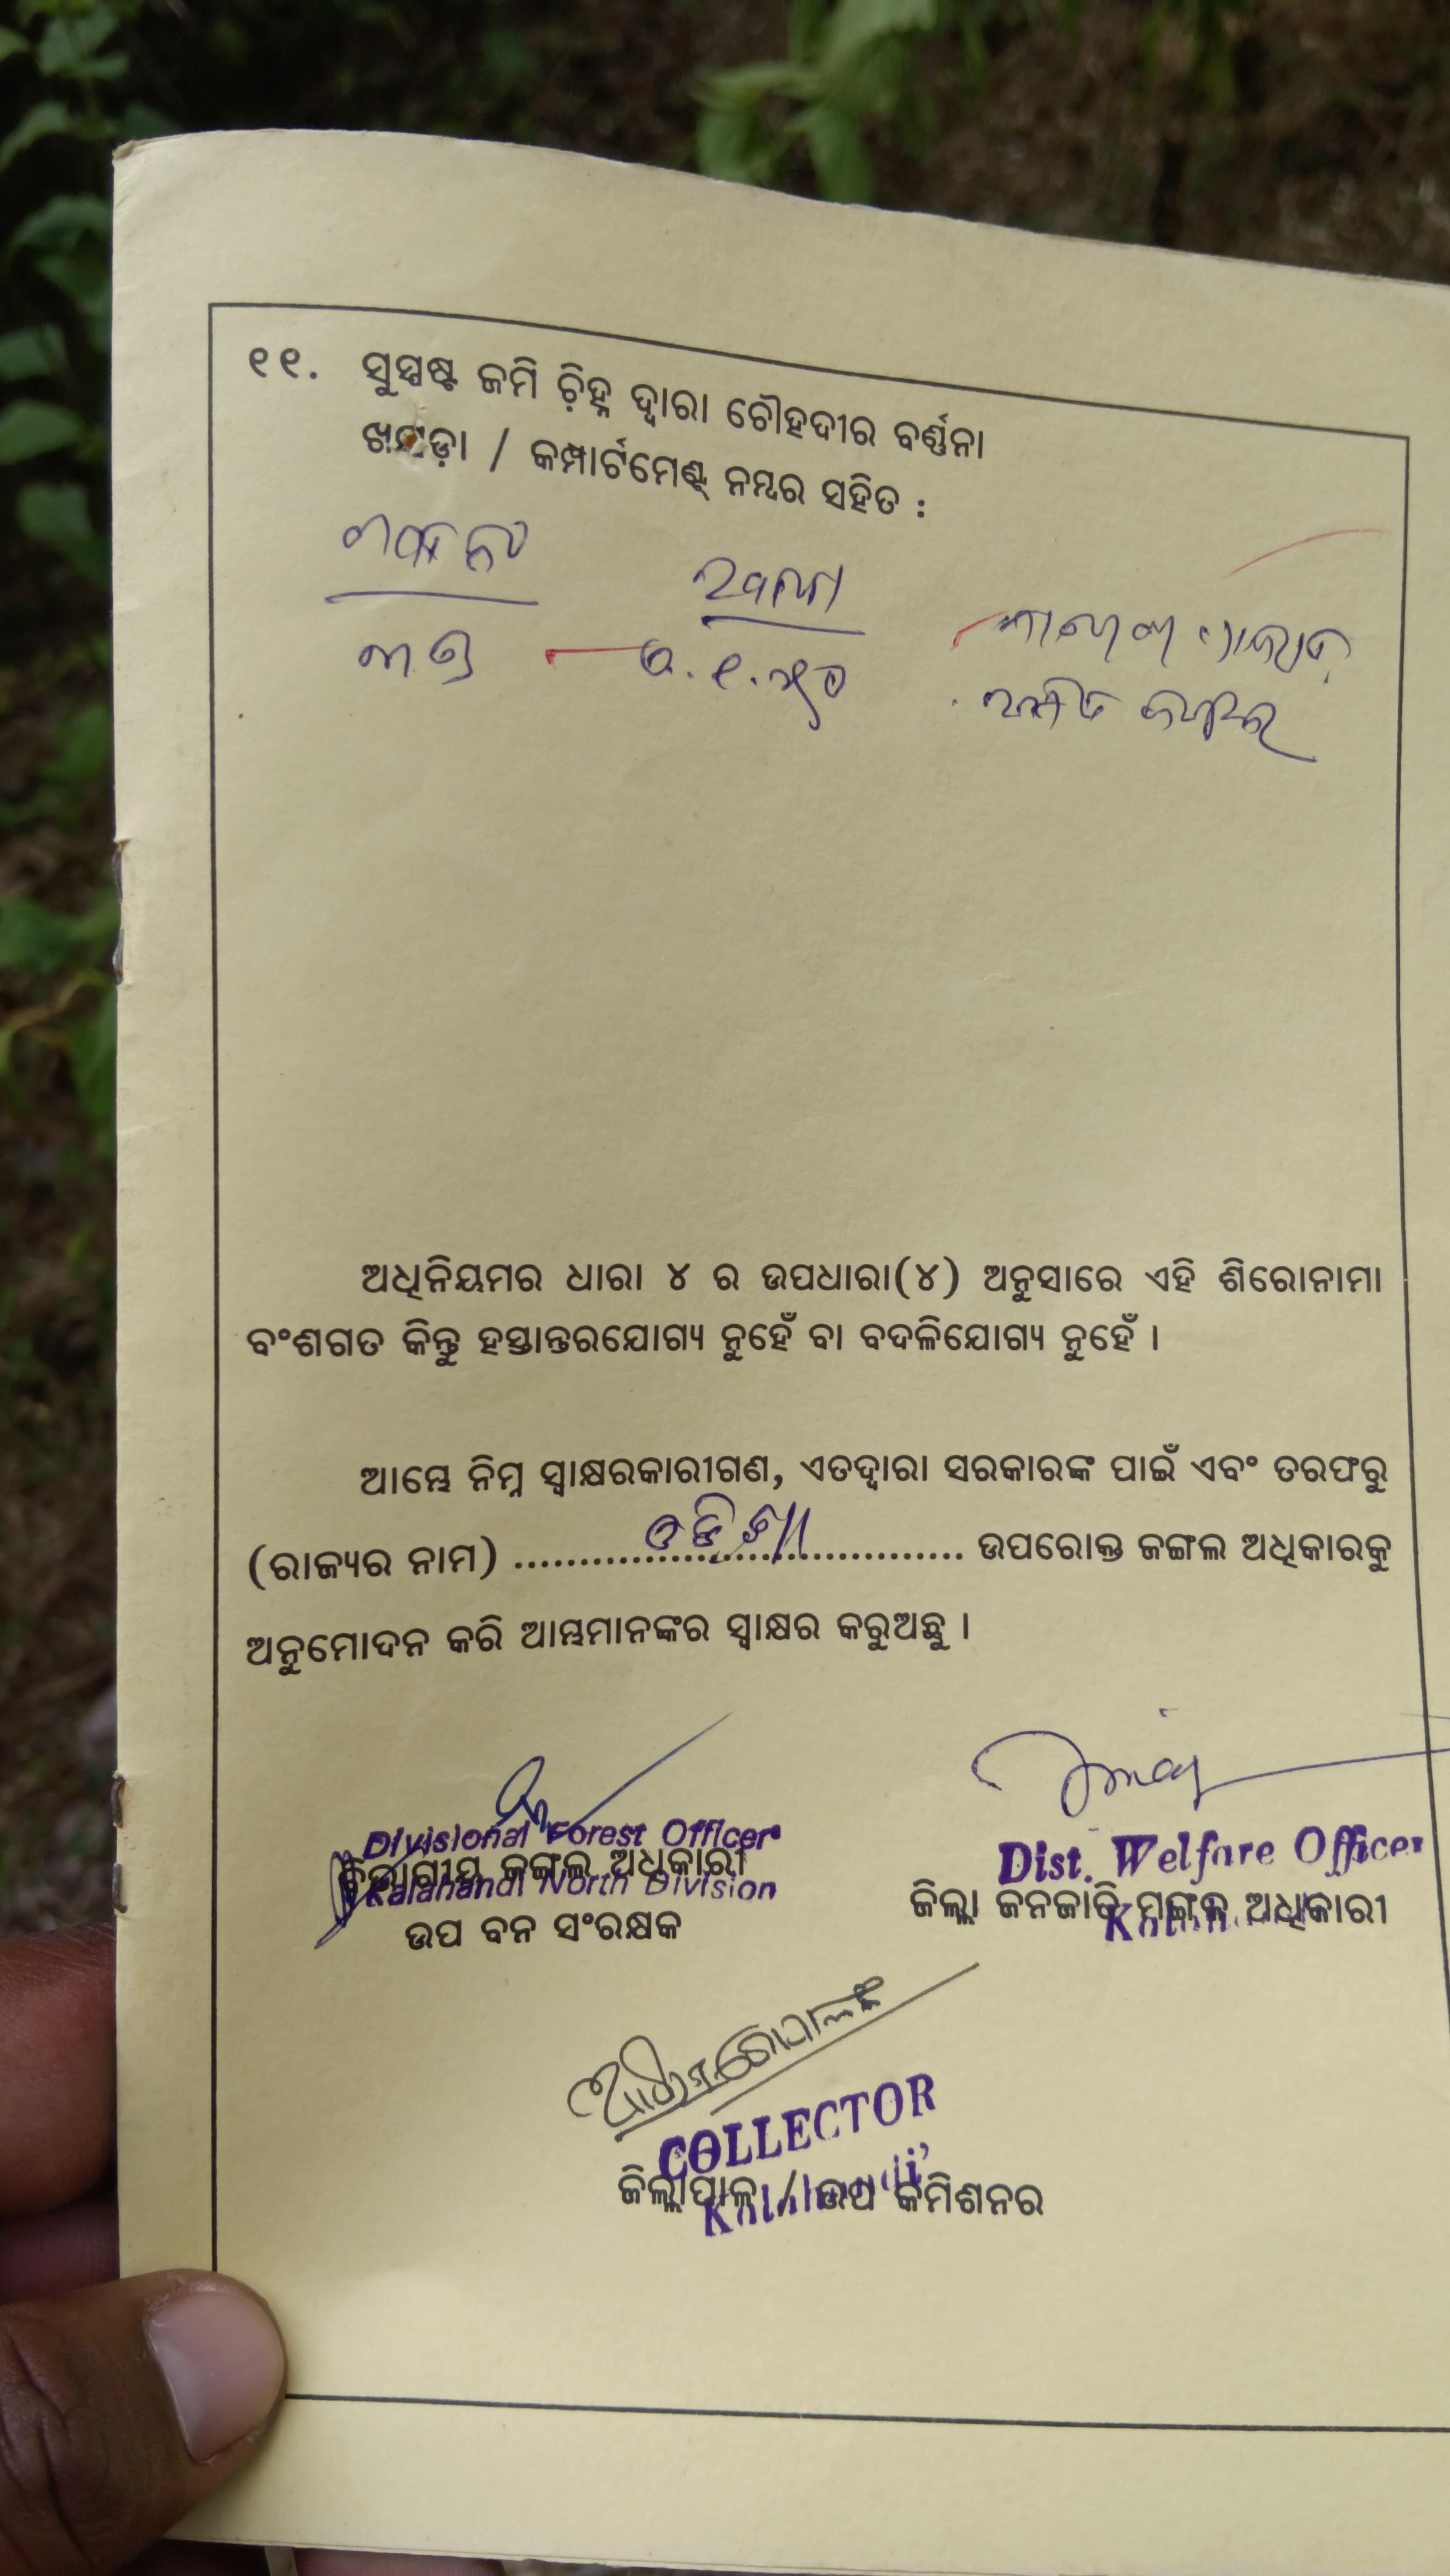 ୧୧. ସୁସ୍ପଷ୍ଟ ଜମି ଚ଼ିହ୍ନ ଦ୍ୱାରା ଚୌହଦୀର ବର୍ଣ୍ଣନା
ଖସଡ଼ା / କମ୍ପାର୍ଟମେଣ୍ଟ୍ ନମ୍ବର ସହିତ :
ରକବା
ଅଧିନିୟମର ଧାରା ୪ ର ଉପଧାରା(୪) ଅନୁସାରେ ଏହି ଶିରୋନାମା
ବଂଶଗତ କିନ୍ତୁ ହସ୍ତାନ୍ତରଯୋଗ୍ୟ ନୁହେଁ ବା ବଦଳିଯୋଗ୍ୟ ନୁହେଁ ।
ଆମ୍ଭେ ନିମ୍ନ ସ୍ୱାକ୍ଷରକାରୀଗଣ, ଏତଦ୍ୱାରା ସରକାରଙ୍କ ପାଇଁ ଏବଂ ତରଫରୁ
(ରାଜ୍ୟର ନାମ) ......ଓଡ଼ିଶା...... ଉପରୋକ୍ତ ଜଙ୍ଗଲ ଅଧିକାରକୁ
ଅନୁମୋଦନ କରି ଆମ୍ଭମାନଙ୍କର ସ୍ୱାକ୍ଷର କରୁଅଛୁ ।
Divisional Forest Officer
ବିଭାଗୀୟ ଜଙ୍ଗଲ ଅଧିକାରୀ
Kalahandi North Division
ଉପ ବନ ସଂରକ୍ଷକ
Dist. Welfare Officer
ଜିଲ୍ଲା ଜନଜାତି ମଙ୍ଗଳ ଅଧିକାରୀ
COLLECTOR
ଜିଲ୍ଲାପାଳ / ଉପ କମିଶନର
Kalahandi